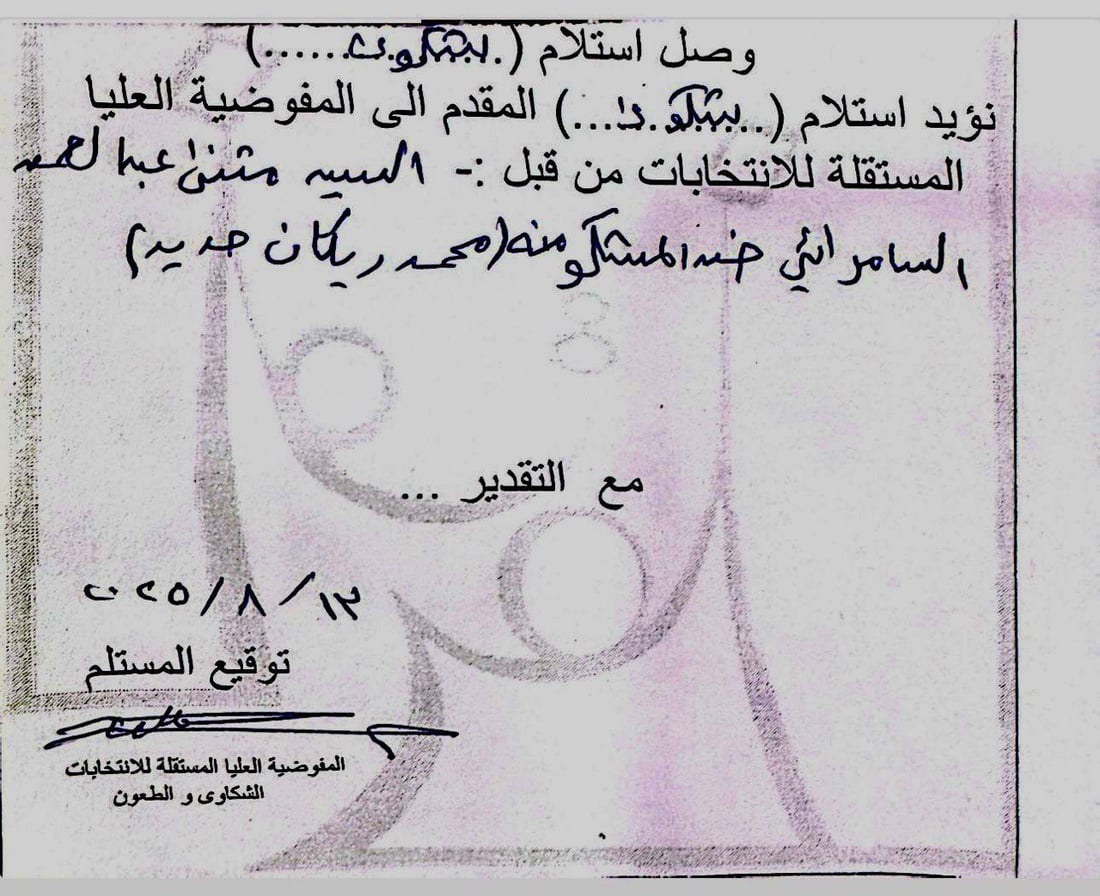 وصل استلام (..شكوى......)
نؤيد استلام (..شكوى...) المقدم الى المفوضية العليا
المستقلة للانتخابات من قبل :- السيد مثنى عبد الصمد
السامرائي ضد المشكو منه (محمد ريكان حديد)
مع التقدير ...
٢٠٢٥/٨/١٣
توقيع المستلم
المفوضية العليا المستقلة للانتخابات
الشكاوى و الطعون